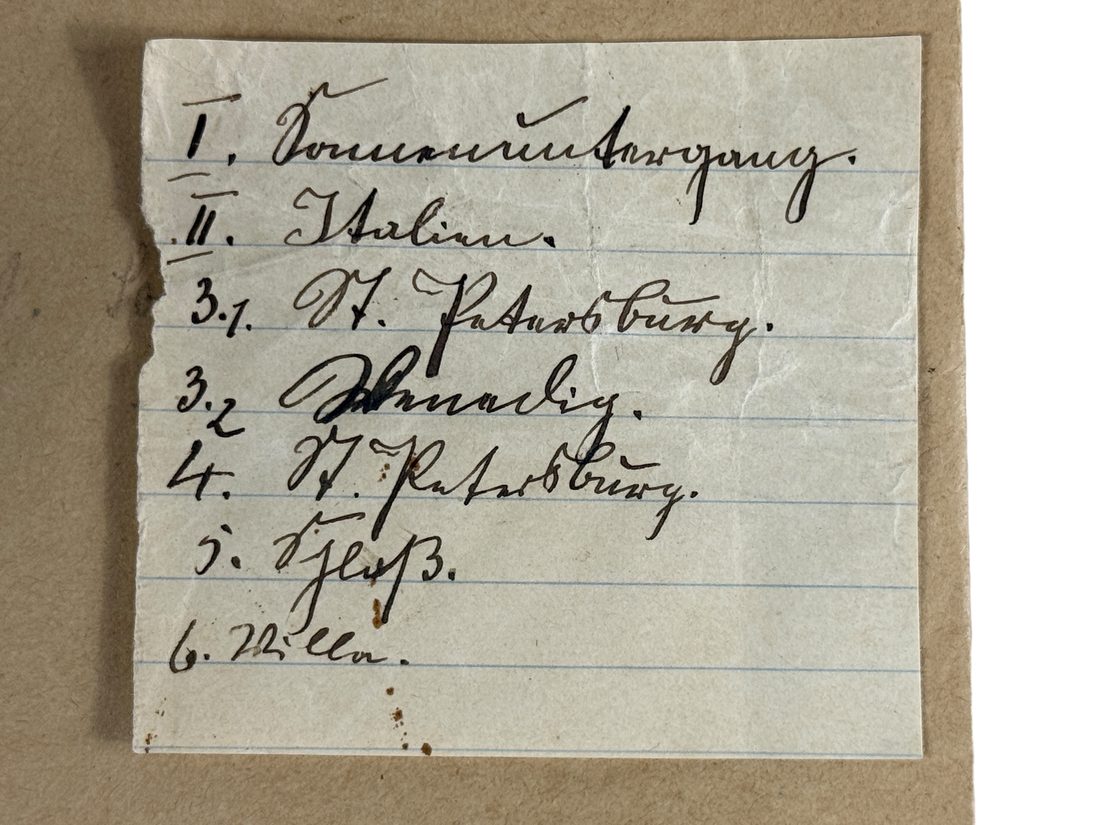 I. Sonnenuntergang.
II. Italien.
3.1. St. Petersburg.
3.2 Venedig.
4. St. Petersburg.
5. Schloß.
6. Villa.